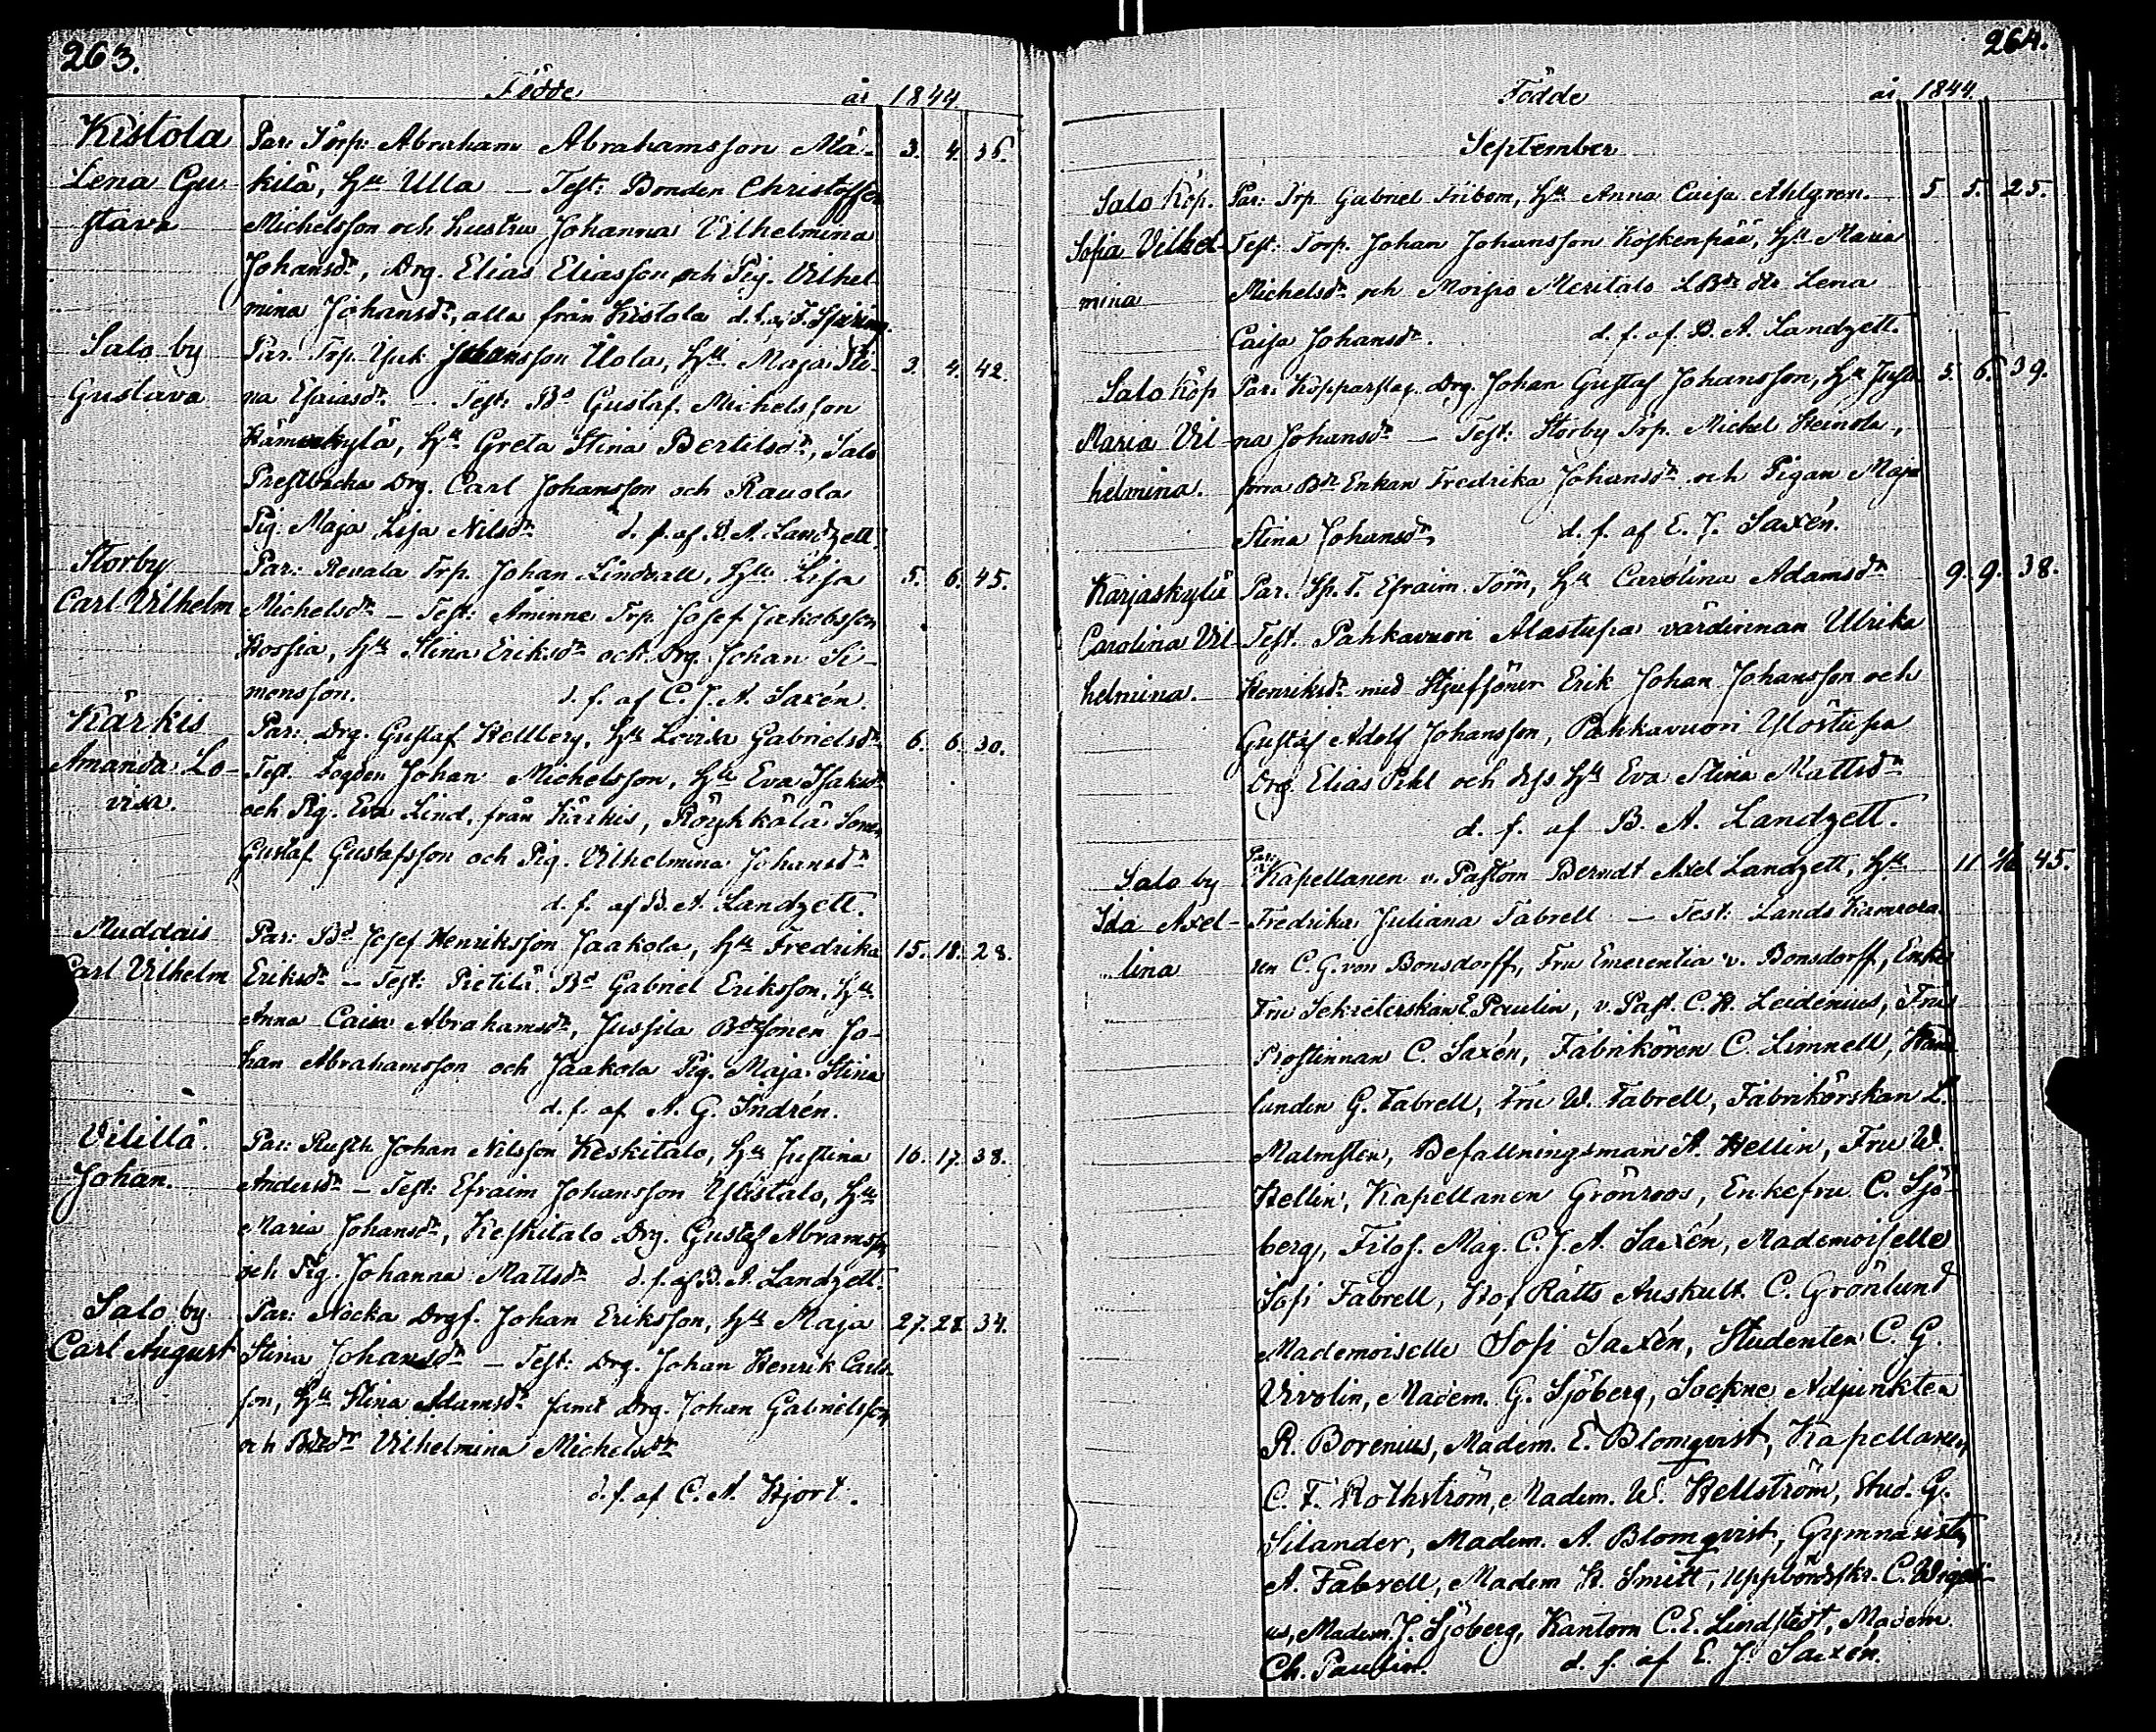 263.
Födde år 1844.
Kistola Par: Torp: Abraham Abrahamsson Mä- 3. 4. 36.
Lena Gu- kilä, Hu Ulla — Test: Bonden Christoffer
stava Michelsson och hustru Johanna Vilhelmina
Johansdr, Drg. Elias Eliasson och Pig. Vilhel-
mina Johansdr, alla från Kistola
Salo by Par: Trp. Johansson Uola, Hu Maja Sti- 3. 4. 42.
Gustava na Esaiasdr. — Test: Bd Gustaf Michelsson
Hu Greta Stina Bertilsdr, Salo
Prestbacka Drg. Carl Johansson och Rauola
Pig. Maja Lisa Nilsdr d. f. af B. A. Landzett.
Storby Par: Revala Trp. Johan Lindvall, Hu Lisa 5. 6. 45.
Carl Vilhelm Michelsdr — Test: Åminne Trp. Josef Jakobsson
Hossia, Hu Stina Eriksdr och Drg. Johan Si-
monsson. d. f. af C. J. A. Saxén.
Kärkis Par: Drg. Gustaf Hellberg, Hu Lovisa Gabrielsdr 6. 6. 30.
Amanda Lo- Test. Johan Michelsson, Hu Eva Isaksdr
visa. och Pig. Eva Lind, från Kärkis, Röykkälä Sonen
Gustaf Gustafsson och Pig. Vilhelmina Johansdr
d. f. af B. A. Landzett.
Muddais Par: Bd Josef Henriksson Jaakola, Hu Fredrika 15. 18. 28.
Carl Vilhelm Eriksdr — Test: Pietilä Bd Gabriel Eriksson, Hu
Anna Caisa Abrahamsdr, Jussila Bdesonen Jo-
han Abrahamsson och Jaakola Pig. Maja Stina
d. f. af A. G. Indrén.
Vilillä. Par: Rusth. Johan Nilsson Keskitalo, Hu Justina 16. 17. 38.
Johan. Andersdr — Test: Efraim Johansson Ylistalo, Hu
Maria Johansdr, Keskitalo Drg. Gustaf Abramsson
och Pig. Johanna Mattsdr d. f. af B. A. Landzett.
Salo by Par: Nocka Drgf. Johan Eriksson, Hu Maja 27. 27. 34.
Carl August Stina Johansdr — Test: Drg. Johan Henrik Carls-
son, Hu Stina Adamsdr samt Drg. Johan Gabrielsson
och Bdedr Vilhelmina Michelsdr
d. f. af C. A. Hjort.
264.
Födde år 1844.
September
Salo Köp. Par: Trp Gabriel Fribom, Hu Anna Caisa Ahlgren. 5 5. 25.
Sofia Vilhel- Test: Torp. Johan Johansson Koskenpää, Hu Maria
mina Michelsdr och Moisio Meritalo dtr Lena
Caisa Johansdr. d. f. af B. A. Landzett.
Salo Köp Par: Kopparslag. Drg. Johan Gustaf Johansson, Hu Justi- 5. 6. 39.
Maria Vil- na Johansdr — Test: Storby Trp. Michel Heinola,
helmina. förra Bde Enkan Fredrika Johansdr och Pigan Maja
Stina Johansdr, d. f. af E. J. Saxén.
Karjaskylä Par. Sp. T. Efraim Törn, Hu Carolina Adamsdr 9. 9. 38.
Carolina Vil- Test. Pahkavuori Alastupa värdinnan Ulrika
helmina. Henriksdr med Stjufsöner Erik Johan Johansson och
Gustaf Adolf Johansson, Pahkavuori Ylöstupa
Drg. Elias Pihl och dess Hu Eva Stina Mattsdr
d. f. af B. A. Landzett.
Salo by Par: Kapellanen v. Pastorn Berndt Axel Landzett, Hu 11. 45.
Ida Axel- Fredrika Juliana Fabrell — Test: Lands Kamrera-
lina ren C. G. von Bonsdorff, Fru Emerentia v. Bonsdorff, Enke
Fru Sekreterskan E. Paulin, v. Past. C. H. Leidenius, Fru
Prostinnan C. Saxén, Fabrikören C. Limnell,
G. Fabrell, Fru W. Fabrell, Fabrikörskan L.
Malmsten, Befallningsman A. Hellin, Fru W.
Hellin, Kapellanen Grönroos, Enkefru C. Sjö-
berg, Filos. Mag. C. J. A. Saxén, Mademoiselle
Sofi Fabrell, Hof Rätts Auskult. C. Grönlund
Mademoiselle Sofi Saxén, Studenten C. G.
Virolin, Madem. G. Sjöberg, Sockne Adjunkten
R. Borenius, Madem. E. Blomqvist, Kapellanen
C. F. Rothström, Madem. W. Hellström, Stud. G.
Silander, Madem. A. Blomqvist, Gymnasisten
A. Fabrell, Madem H. Smitt, Uppbördsskr. C.
us, Madem. J. Sjöberg, Kantorn C. E. Lindstedt, Madem
Ch. Paulin. d. f. af E. J. Saxén.